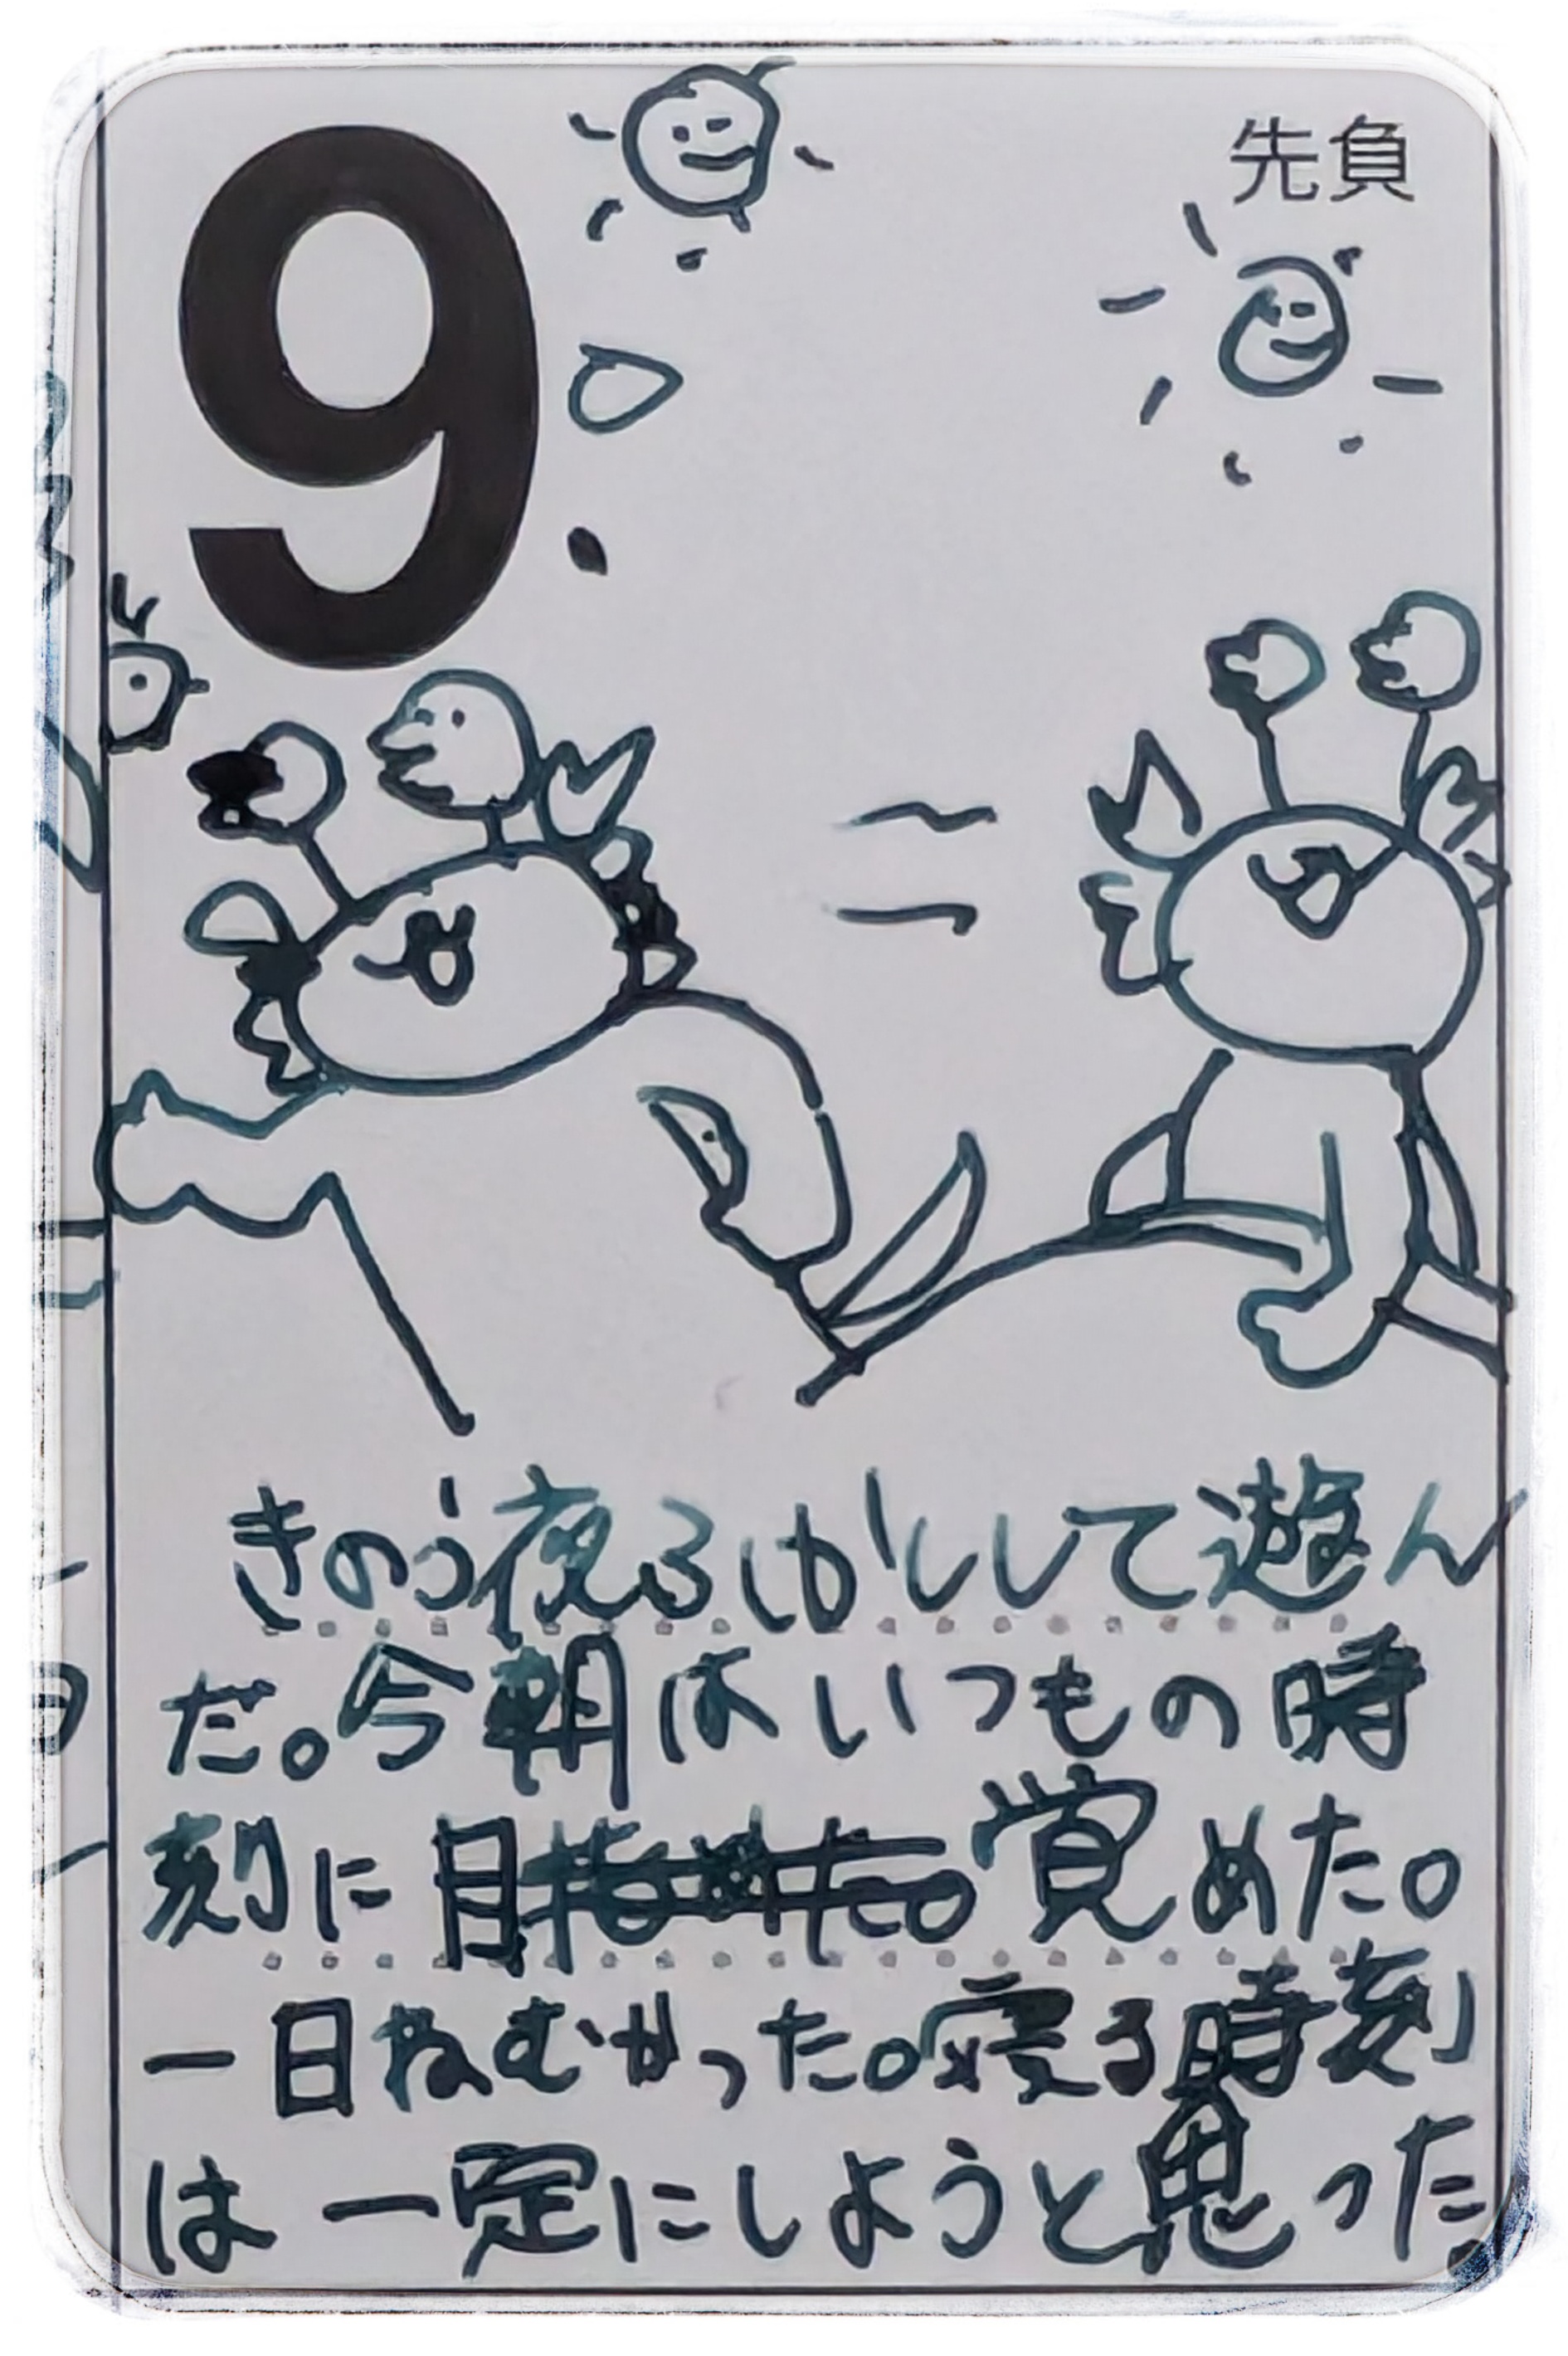 9
先負
きのう夜ふかしして遊ん
だ。今朝はいつもの時
刻に目覚めた。
一日ねむかった。寝る時刻
は一定にしようと思った。